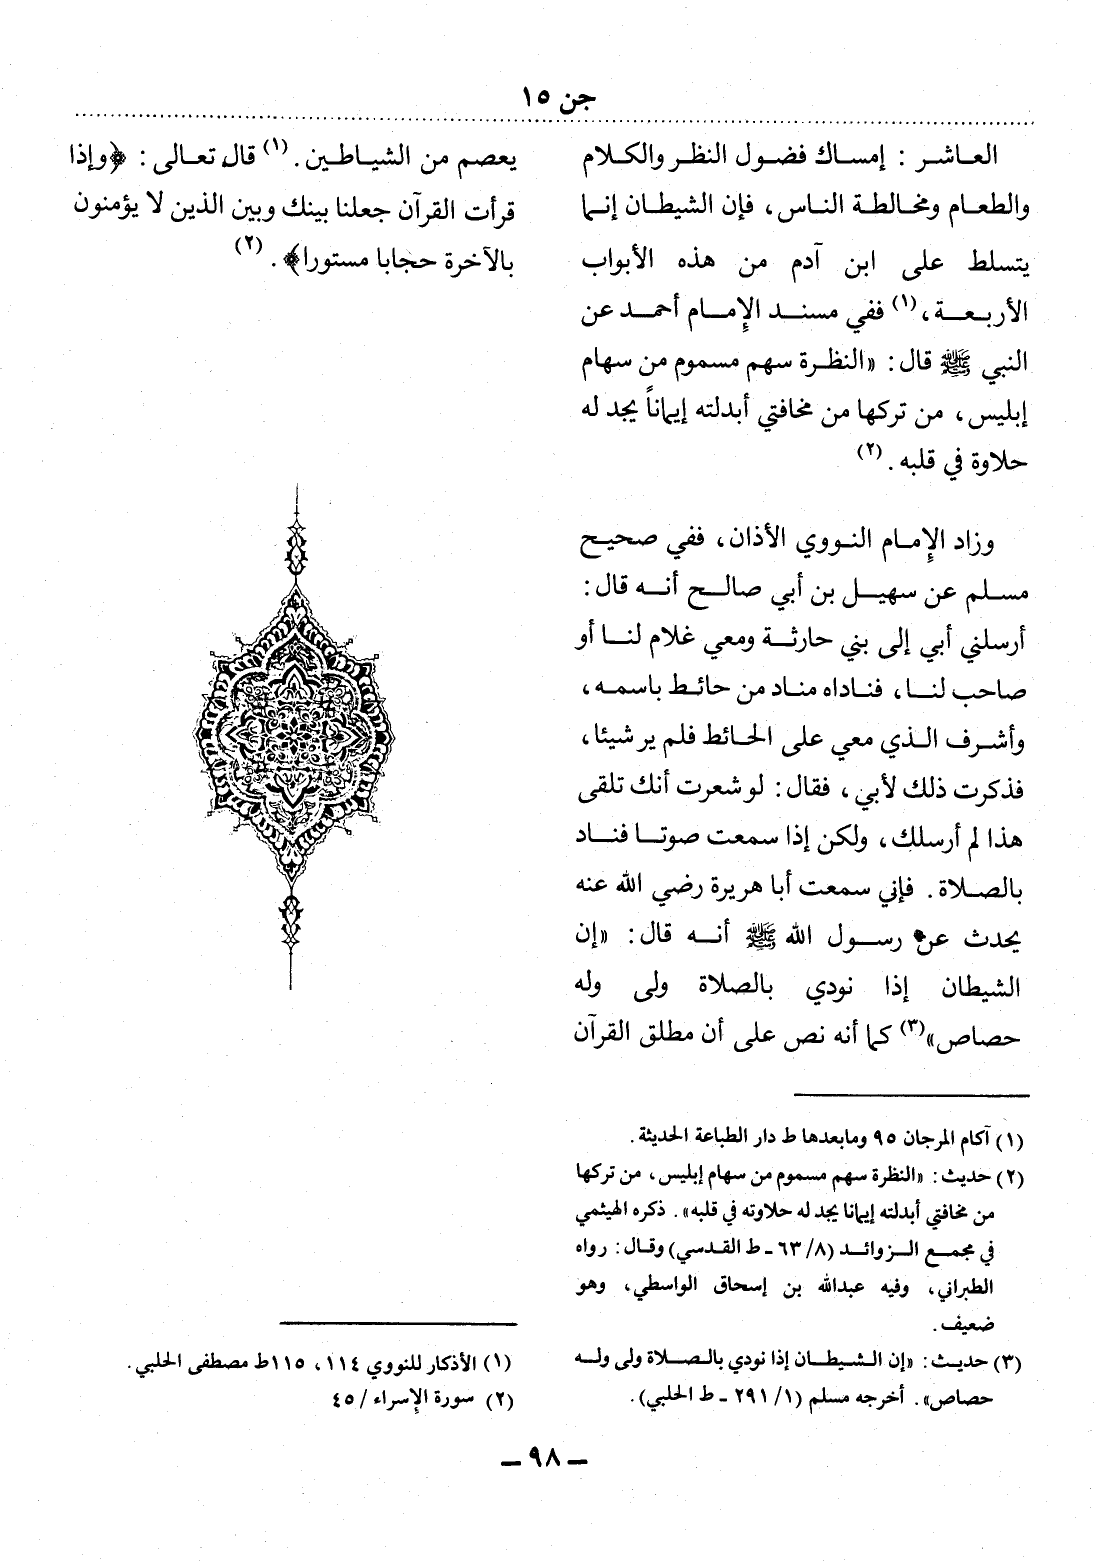 جن ١٥
العاشر : إمساك فضول النظر والكلام
والطعام ومخالطة الناس، فإن الشيطان إنما
يتسلط على ابن آدم من هذه الأبواب
الأربعة، (١) ففي مسند الإمام أحمد عن
النبي ﷺ قال: «النظرة سهم مسموم من سهام
إبليس، من تركها من مخافتي أبدلته إيماناً يجد له
حلاوة في قلبه. (٢)
وزاد الإمام النووي الأذان، ففي صحيح
مسلم عن سهيل بن أبي صالح أنه قال:
أرسلني أبي إلى بني حارثة ومعي غلام لنا أو
صاحب لنا، فناداه مناد من حائط باسمه،
وأشرف الذي معي على الحائط فلم ير شيئا،
فذكرت ذلك لأبي، فقال: لو شعرت أنك تلقى
هذا لم أرسلك، ولكن إذا سمعت صوتا فناد
بالصلاة. فإني سمعت أبا هريرة رضي الله عنه
يحدث عن رسول الله ﷺ أنه قال: «إن
الشيطان إذا نودي بالصلاة ولى وله
حصاص» (٣) كما أنه نص على أن مطلق القرآن
(١) آكام المرجان ٩٥ ومابعدها ط دار الطباعة الحديثة.
(٢) حديث: «النظرة سهم مسموم من سهام إبليس، من تركها
من مخافتي أبدلته إيمانا يجد له حلاوته في قلبه». ذكره الهيثمي
في مجمع الزوائد (٨/ ٦٣ - ط القدسي) وقال: رواه
الطبراني، وفيه عبدالله بن إسحاق الواسطي، وهو
ضعيف.
(٣) حديث: «إن الشيطان إذا نودي بالصلاة ولى وله
حصاص». أخرجه مسلم (١/ ٢٩١ - ط الحلبي).
يعصم من الشياطين. (١) قال تعالى: ﴿وإذا
قرأت القرآن جعلنا بينك وبين الذين لا يؤمنون
بالآخرة حجابا مستورا﴾. (٢)
(١) الأذكار للنووي ١١٤، ١١٥ط مصطفى الحلبي.
(٢) سورة الإسراء / ٤٥
- ٩٨ -